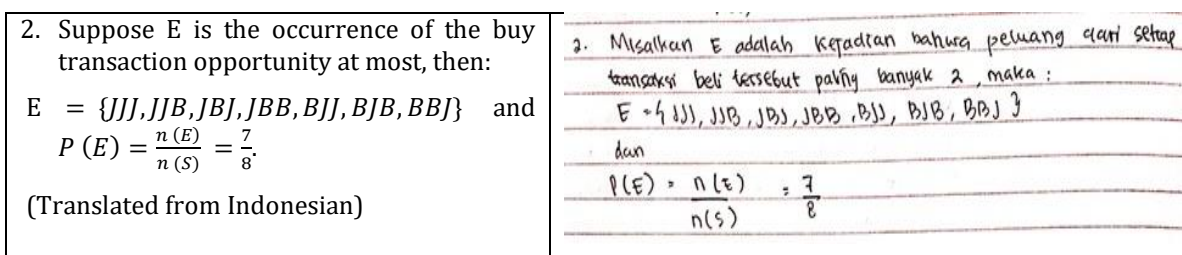 2. Suppose E is the occurrence of the buy
transaction opportunity at most, then:
E = {JJJ, JJB, JBJ, JBB, BJJ, BJB, BBJ} and
P (E) = n (E) / n (S) = 7/8.
(Translated from Indonesian)
2. Misalkan E adalah kejadian bahwa peluang dari setiap
transaksi beli tersebut paling banyak 2, maka :
E = { JJJ, JJB, JBJ, JBB, BJJ, BJB, BBJ }
dan
P(E) = n(E) / n(S) = 7/8